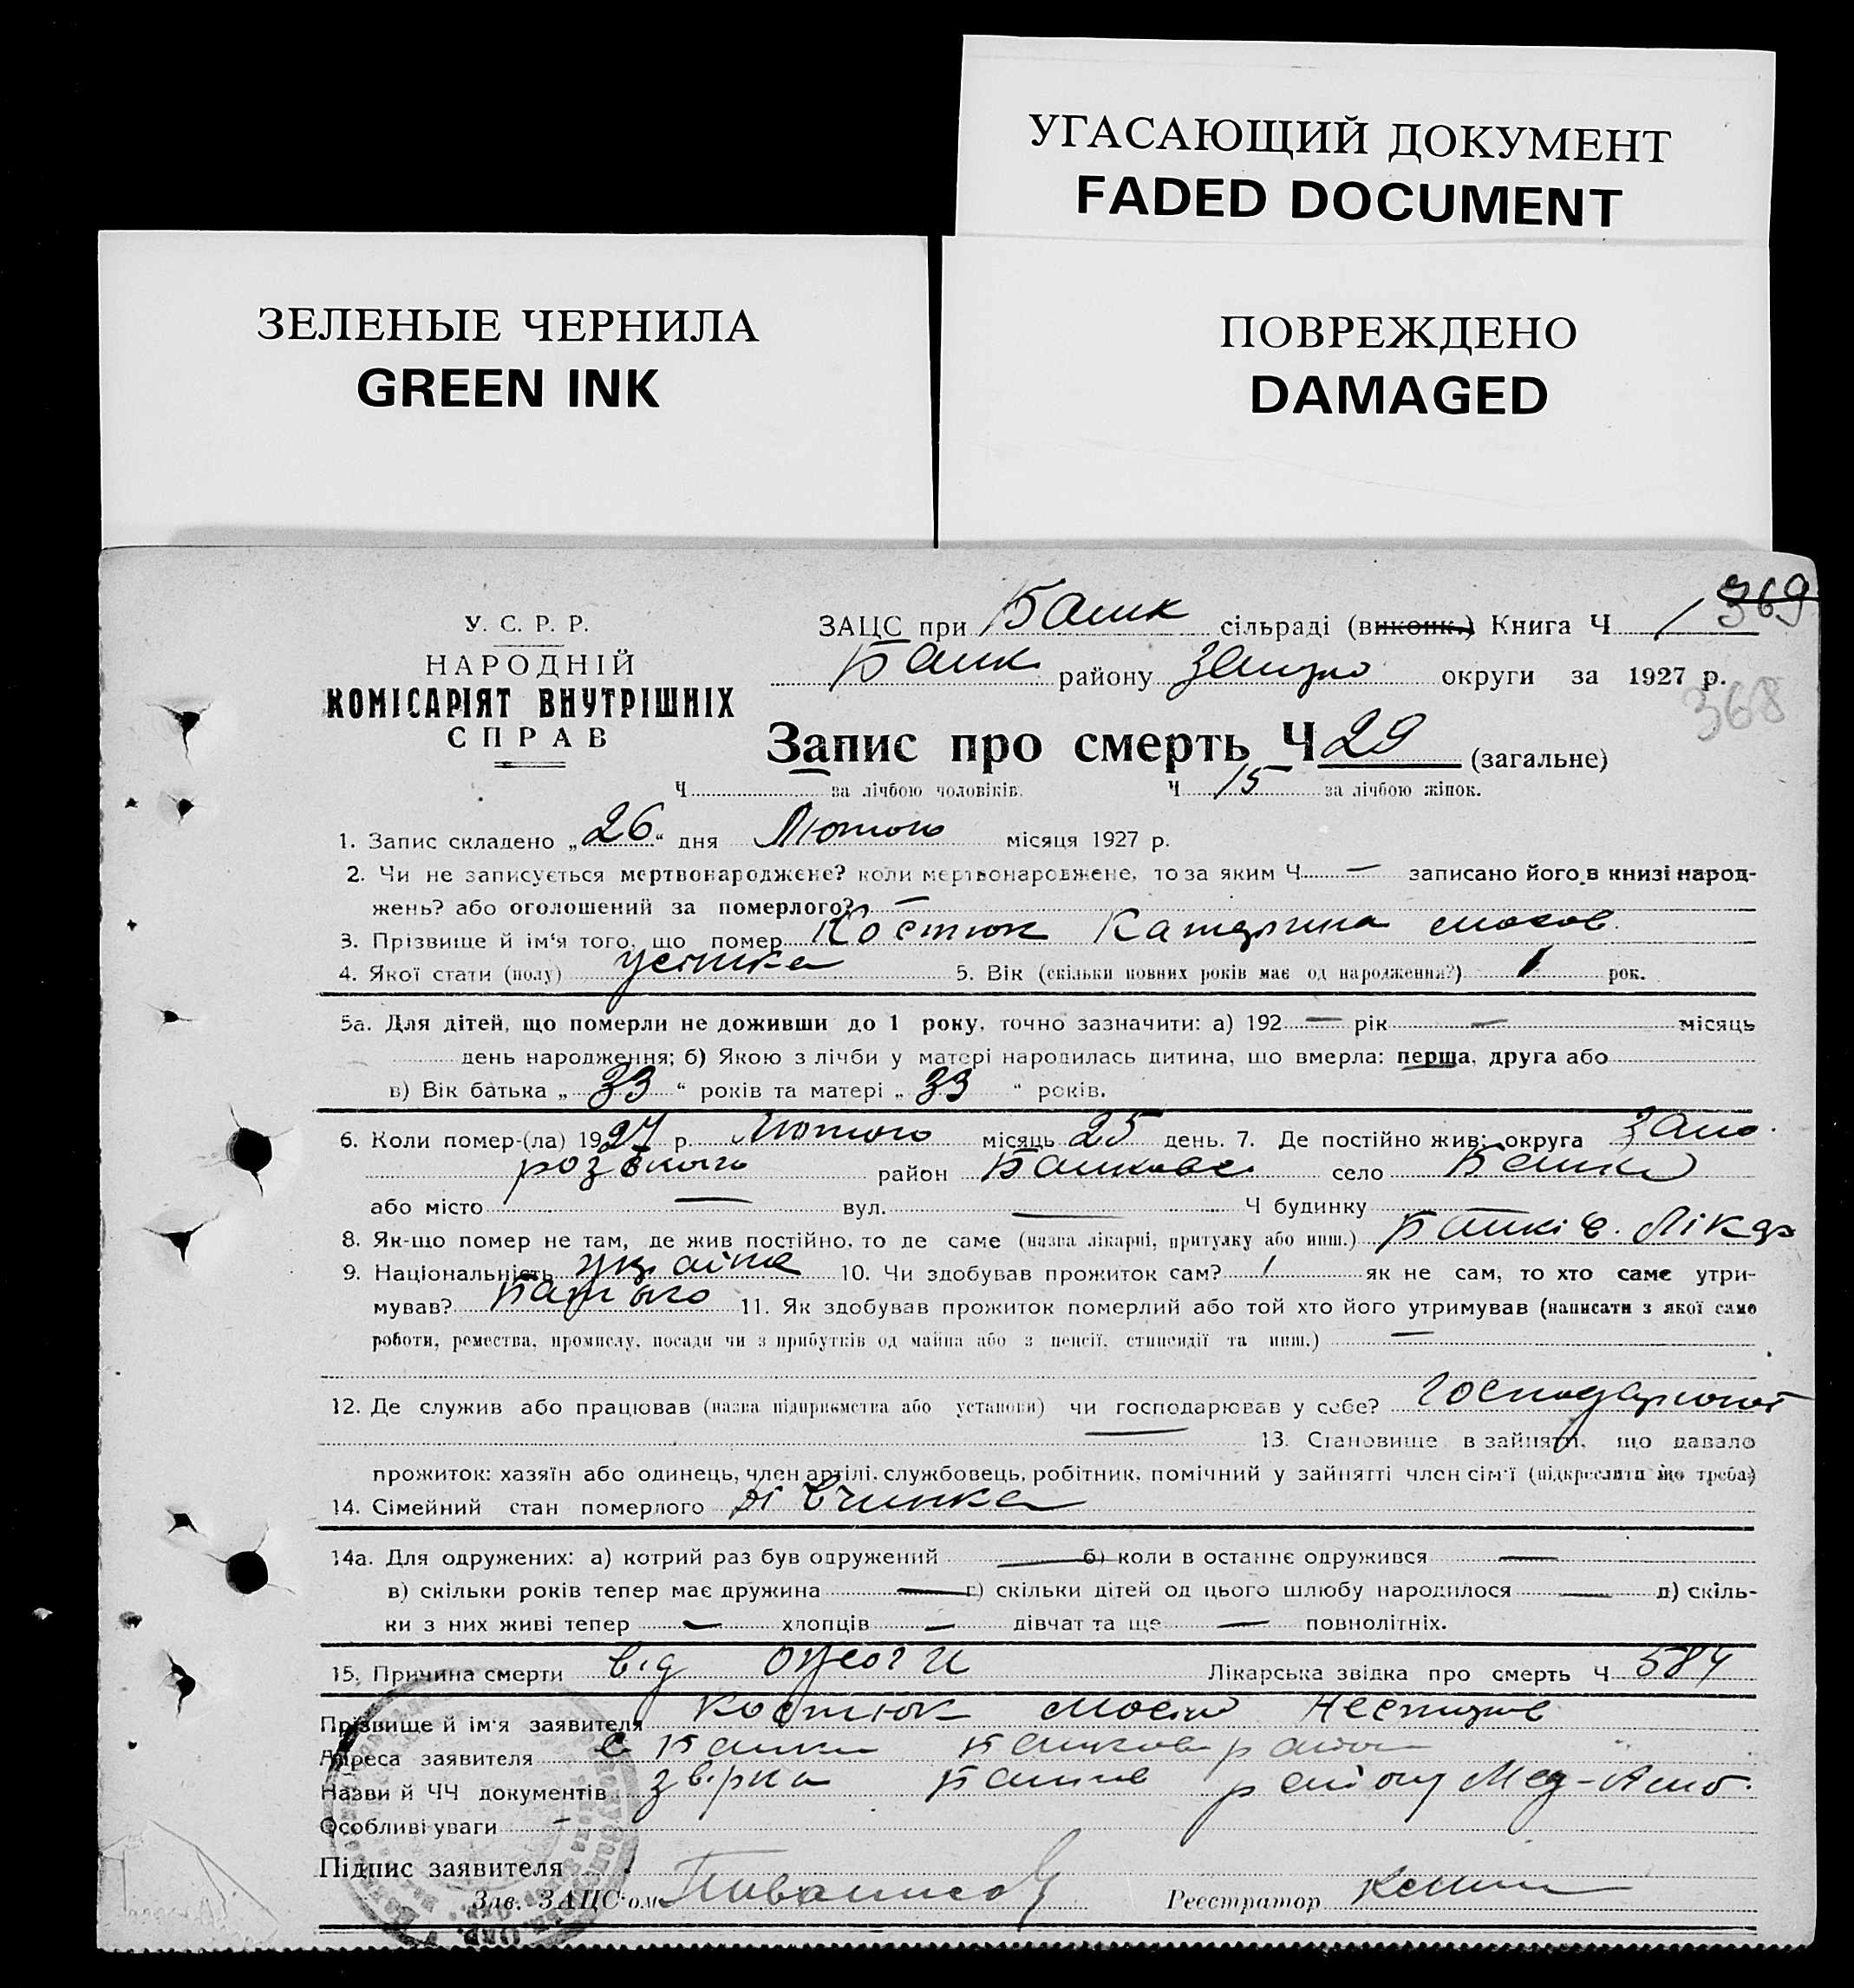 УГАСАЮЩИЙ ДОКУМЕНТ
FADED DOCUMENT
ЗЕЛЕНЫЕ ЧЕРНИЛА
GREEN INK
ПОВРЕЖДЕНО
DAMAGED
369
У. С. Р. Р.
НАРОДНІЙ
КОМІСАРІЯТ ВНУТРІШНІХ
СПРАВ
ЗАЦС при Башк сільраді (виконк.) Книга Ч 1
Башк району округи за 1927 р.
368
Запис про смерть Ч 29 (загальне)
Ч за лічбою чоловіків. Ч 15 за лічбою жінок.
1. Запис складено „26“ дня Лютого місяця 1927 р.
2. Чи не записується мертвонароджене? коли мертвонароджене, то за яким Ч — записано його в книзі народ-
жень? або оголошений за померлого? —
3. Прізвище й ім'я того, що помер Костюк Катерина
4. Якої стати (полу) 5. Вік (скільки повних років має од народження?) 1 рок.
5а. Для дітей, що померли не доживши до 1 року, точно зазначити: а) 192 — рік — місяць
день народження; б) Якою з лічби у матері народилась дитина, що вмерла: перша, друга або
в) Вік батька „33“ років та матері „33“ років.
6. Коли помер-(ла) 1927 р. Лютого місяць 25 день. 7. Де постійно жив: округа Запо
різького район село Башки
або місто — вул. — Ч будинку
8. Як-що помер не там, де жив постійно, то де саме (назва лікарні, притулку або инш.) Башків. Лікар
9. Національність україна 10. Чи здобував прожиток сам? як не сам, то хто саме утри-
мував? 11. Як здобував прожиток померлий або той хто його утримував (написати з якої само
роботи, ремества, промислу, посади чи з прибутків од майна або з пенсії, стипендії та инш.) —
12. Де служив або працював (назва підприємства або установи) чи господарював у себе?
— 13. Становище в зайнятті, що давало
прожиток: хазяїн або одинець, член артілі, службовець, робітник, помічний у зайнятті член сім'ї (підкреслити що треба)
14. Сімейний стан померлого дівчинка
14а. Для одружених: а) котрий раз був одружений — б) коли в останнє одружився —
в) скільки років тепер має дружина — г) скільки дітей од цього шлюбу народилося — д) скіль-
ки з них живі тепер — хлопців — дівчат та ще — повнолітніх.
15. Причина смерти від Лікарська звідка про смерть Ч 584
Прізвище й ім'я заявителя Костюк Мосій
Адреса заявителя с Башки району
Назви й ЧЧ документів району Мед-Амб.
Особливі уваги —
Підпис заявителя
Зав. ЗАЦС'ом
Реєстратор